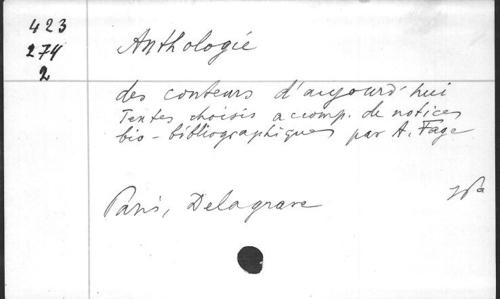 423
274
2
Anthologie
des conteurs d'aujourd'hui
Textes choisis accomp. de notices
bio-bibliographiques par A. Fage
Paris, Delagrave